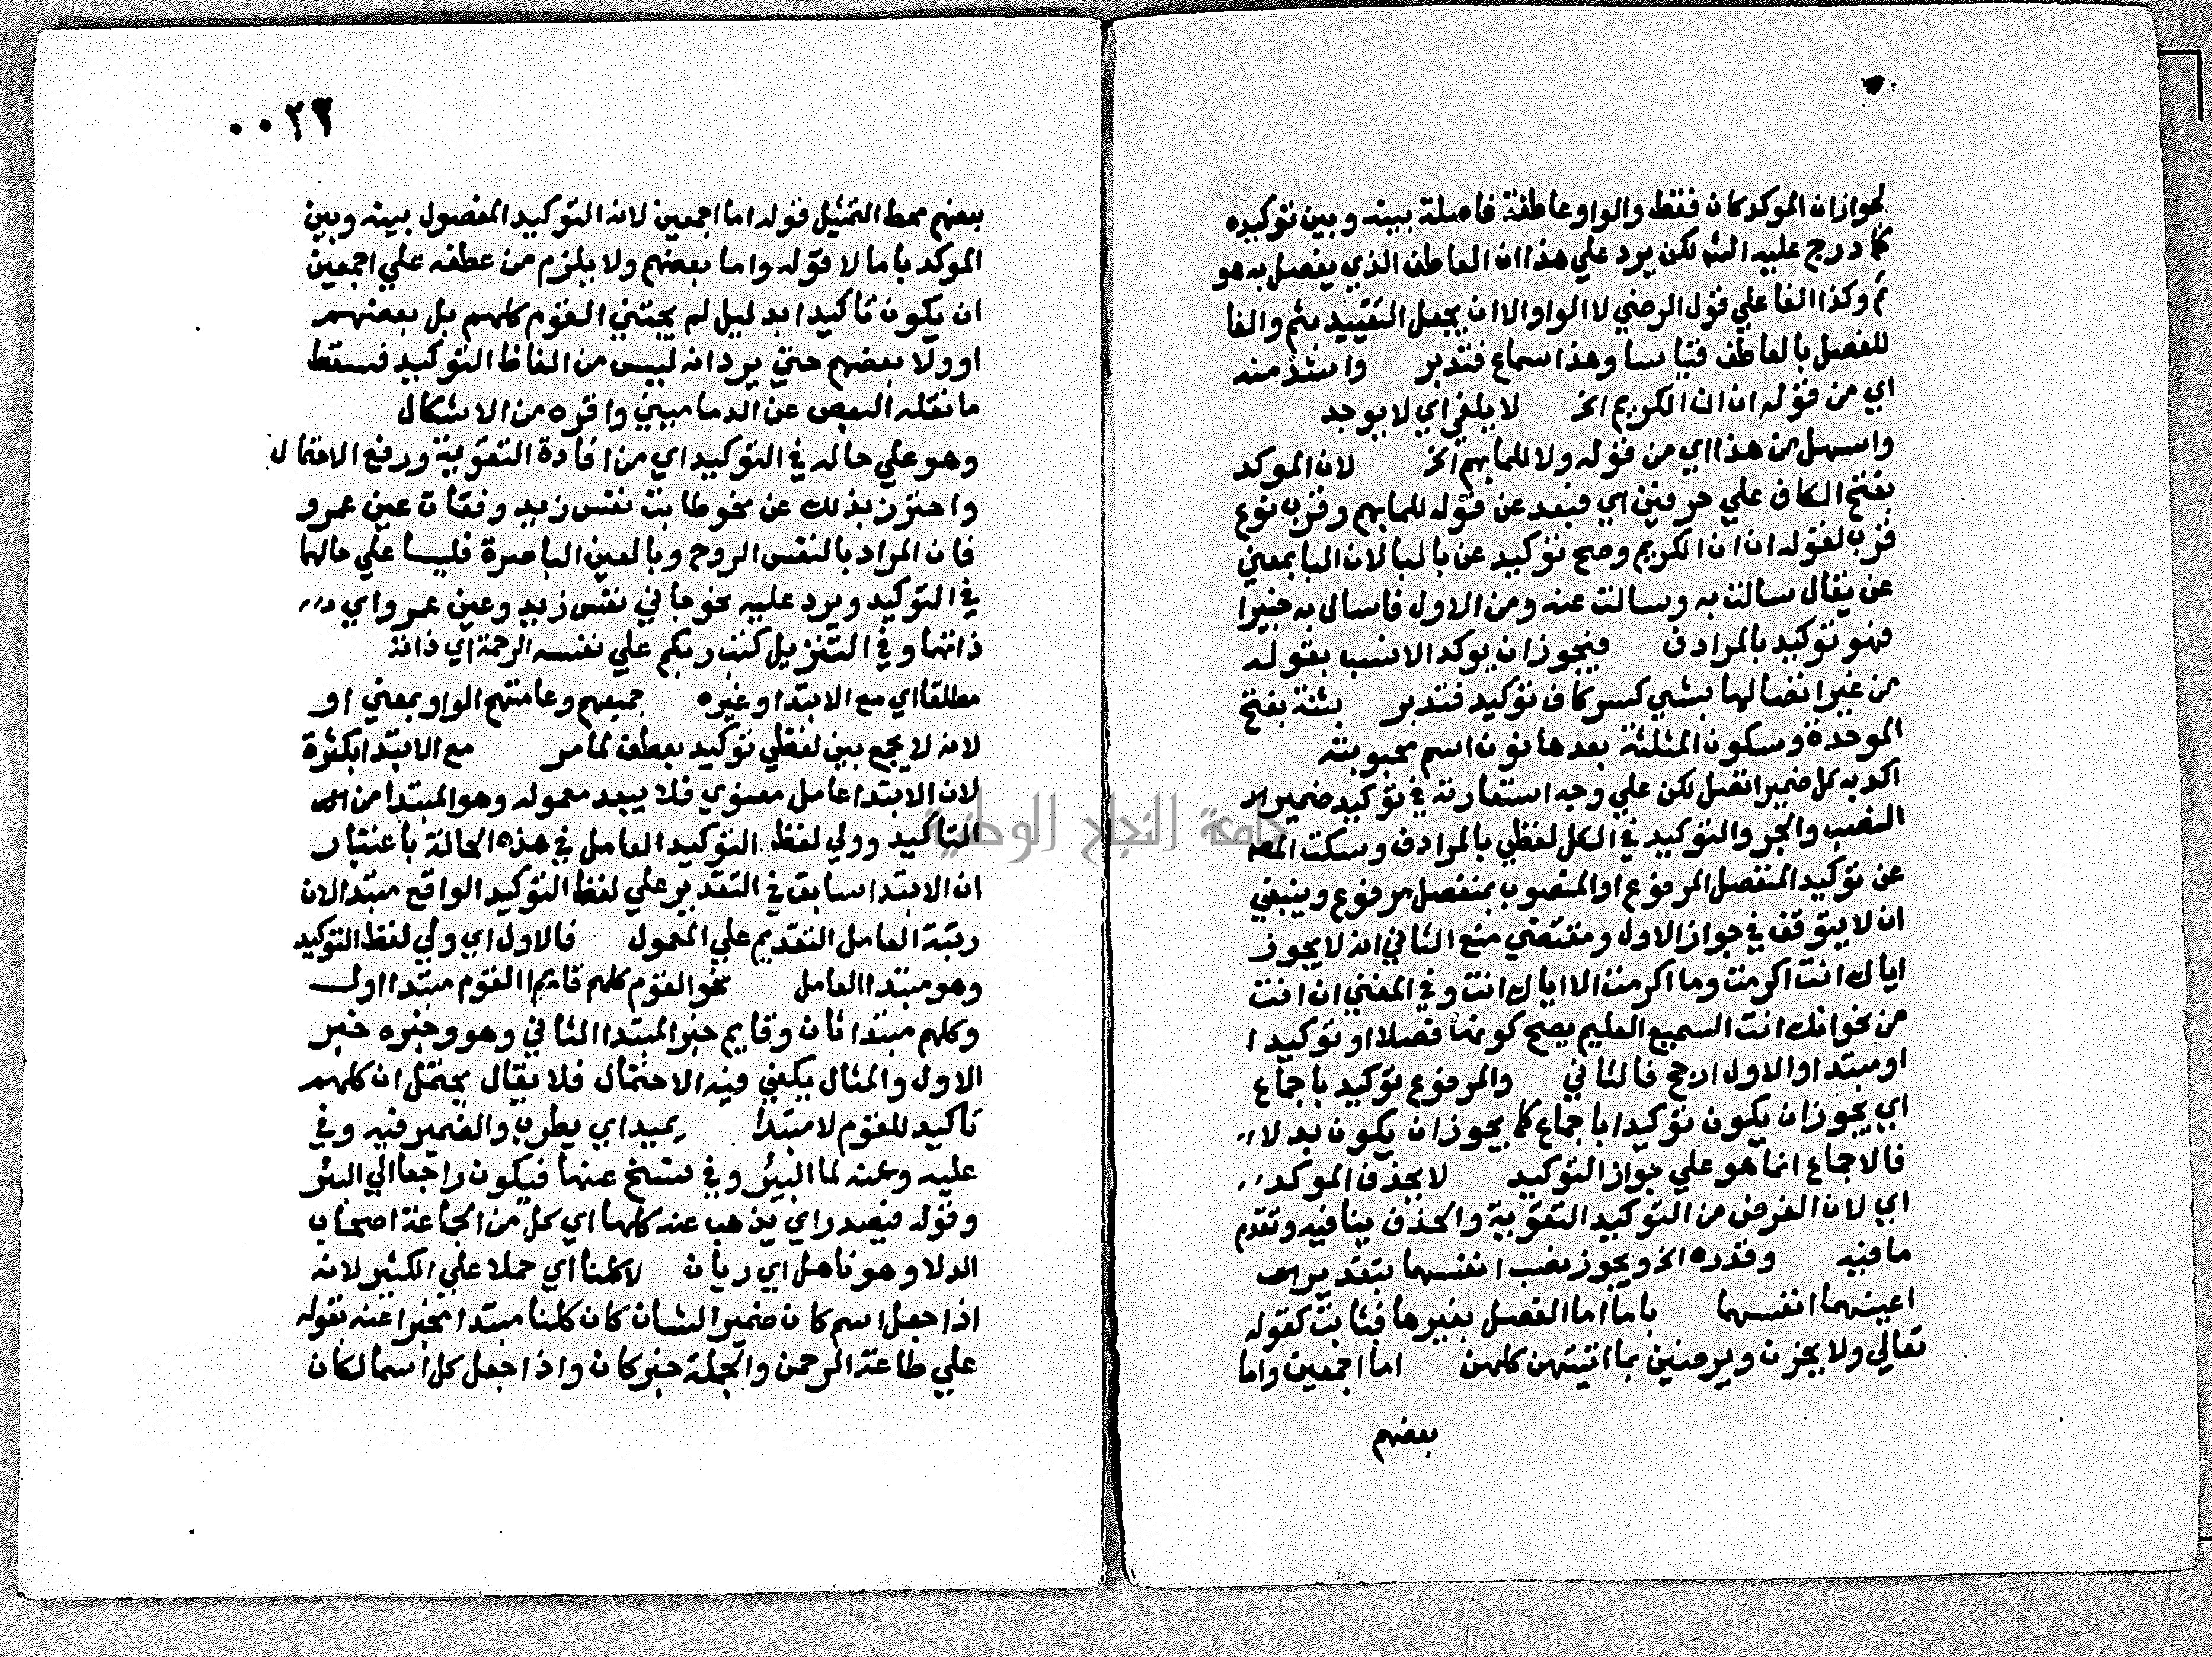 لجواز ان الموكد كان فقط والواو عاطفة فاصلة بينه وبين توكيده
كما درج عليه الشم لكن يرد علي هذا ان العاطف الذي يفصل به هو
ثم وكذا الفا علي قول الرضي لا الواو الا ان يجعل التقييد بثم والفا
للفصل بالعاطف قياسا وهذا سماع فتدبر واشذ منه
اي من قوله ان ان الكريم الخ لا يلفي اي لا يوجد
واسهل من هذا اي من قوله ولا للما بهم الخ لان الموكد
بفتح الكاف علي حرفين اي فبعد عن قوله للما بهم وقرب نوع
قرب لقوله ان ان الكريم وصح توكيد عن بالبا لان البا بمعني
عن يقال سالت به وسالت عنه ومن الاول فاسال به خبيرا
فهو توكيد بالمرادف فيجوز ان يوكد الانسب بقوله
من غير اتصالها بشي كسر كاف توكيد فتدبر بثنة بفتح
الموحدة وسكون المثلثة بعدها نون اسم محبوبته
اكد به كل ضمير اتصل لكن علي وجه استعارته في توكيد ضمير
النصب والجر والتوكيد في الكل لفظي بالمرادف وسكت المص
عن توكيد المنفصل المرفوع او المنصوب بمنفصل مرفوع وينبغي
ان لا يتوقف في جواز الاول ومقتضي منع الثاني انه لا يجوز
اياك انت اكرمت وما اكرمت الا اياك انت وفي المغني ان انت
من نحو انك انت السميع العليم يصح كونها فصلا او توكيدا
او مبتدا والاول ارجح فالثاني والمرفوع توكيد باجماع
اي يجوز ان يكون توكيدا باجماع كما يجوز ان يكون بدلا
فالاجماع انما هو علي جواز التوكيد لا يحذف الموكد
اي لان الغرض من التوكيد التقوية والحذف ينافيه وتقدم
ما فيه وقدره الخ ويجوز نصب انفسهما بتقدير
اعينهما انفسهما باما اما الفصل بغيرها فثابت كقوله
تعالي ولا يحزن ويرضين بما اتيتهن كلهن اما اجمعين واما
بعضهم
٠٠٢٢
بعضهم محط التمثيل قوله اما اجمعين لانه التوكيد المفصول بينه وبين
الموكد باما لا قوله واما بعضهم ولا يلزم من عطفه علي اجمعين
ان يكون تاكيدا بدليل لم يجئني القوم كلهم بل بعضهم
او ولا بعضهم حتي يرد انه ليس من الفاظ التوكيد فسقط
ما نقله البعض عن الدماميني واقره من الاشكال
وهو علي حاله في التوكيد اي من افادة التقوية ورفع الاحتمال
واحترز بذلك عن نحو طابت نفس زيد وفقات عين عمرو
فان المراد بالنفس الروح وبالعين الباصرة فليسا علي حالهما
في التوكيد ويرد عليه نحو جاني نفس زيد وعين عمرو اي
ذاتهما وفي التنزيل كتب ربكم علي نفسه الرحمة اي ذاته
مطلقا اي مع الابتدا وغيره جميعهم وعامتهم الواو بمعني او
لانه لا يجمع بين لفظي توكيد بعطف لما مر مع الابتدا بكثرة
لان الابتدا عامل معنوي فلا يبعد معموله وهو المبتدا من
التاكيد وولي لفظ التوكيد العامل في هذه الحالة باعتبار
ان الابتدا سابق في التقدير علي لفظ التوكيد الواقع مبتدا لان
رتبة العامل التقديم علي المعمول فالاول اي ولي لفظ التوكيد
وهو مبتدا العامل نحو القوم كلهم قايم القوم مبتدا اول
وكلهم مبتدا ثان وقايم خبر المبتدا الثاني وهو وخبره خبر
الاول والمثال يكفي فيه الاحتمال فلا يقال يحتمل ان كلهم
تاكيد للقوم لا مبتدا يميد اي يطرب والضمير فيه وفي
عليه وعنه لما البير وفي نسخ عنها فيكون راجعا الي البئر
وقوله فيصدر اي يذهب عنه كلها اي كل من الجماعة اصحاب
الدلا وهو ناهل اي ريان لا كلنا اي حملا علي الكثير لانه
اذا جعل اسم كان ضمير الشان كان كلنا مبتدا مخبرا عنه بقوله
علي طاعة الرحمن والجملة خبر كان واذا جعل كل اسما لكان
جامعة النجاح الوطنية